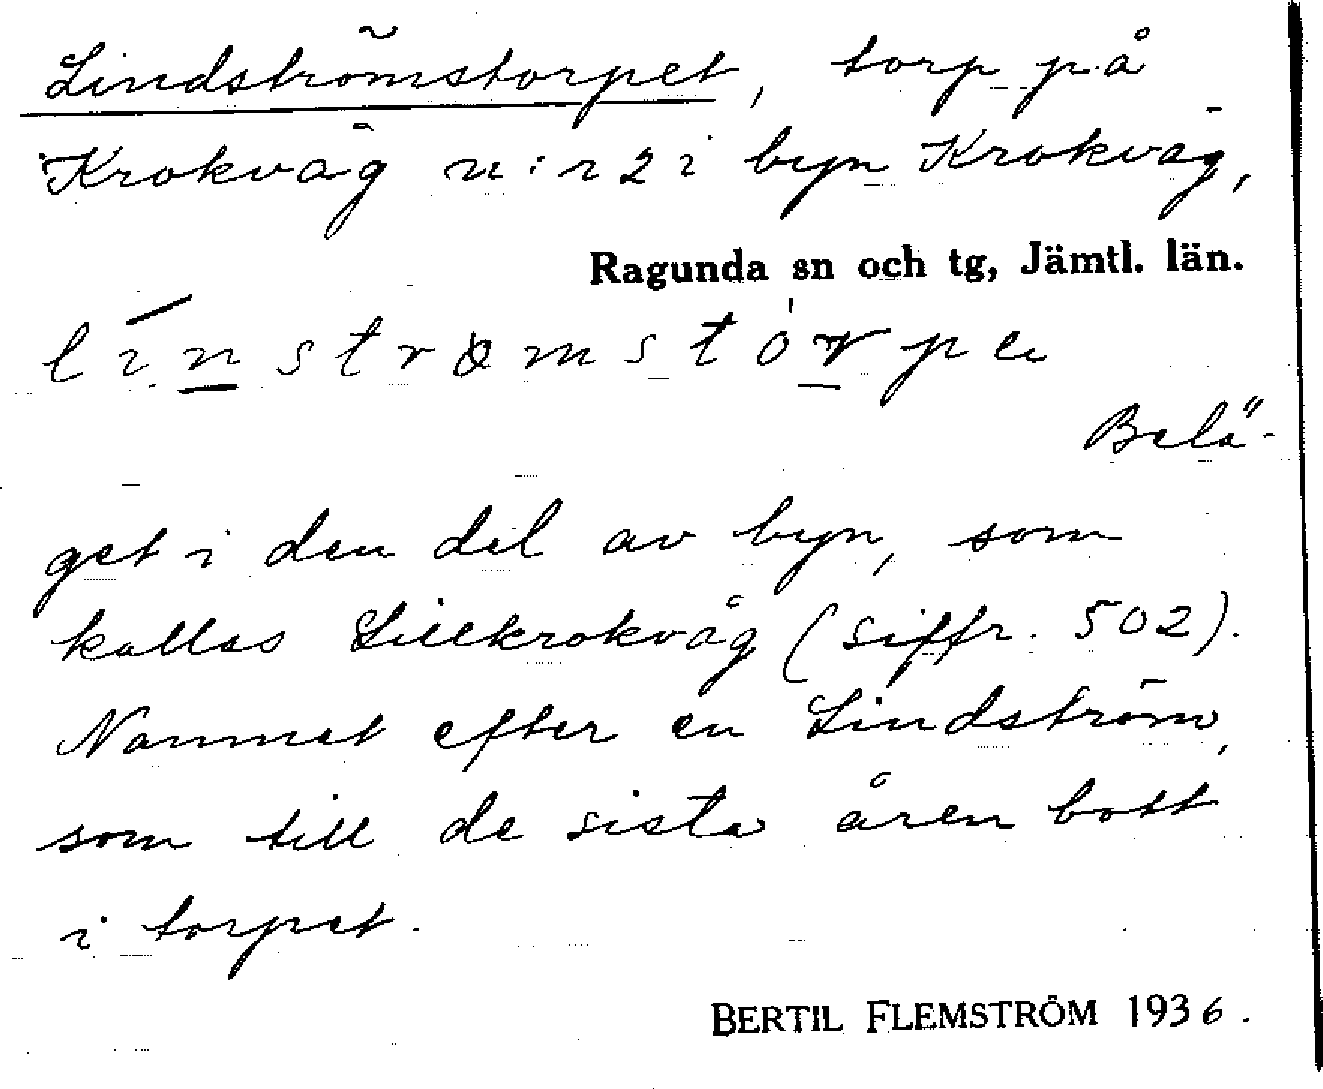 Lindströmstorpet, torp på
Krokvåg n:r 2 i byn Krokvåg,
Ragunda sn och tg, Jämtl. län.
línstrømstòrpe
Belä-
get i den del av byn, som
kallas Lillkrokvåg (siffr. 502).
Namnet efter en Lindström,
som till de sista åren bott
i torpet.
BERTIL FLEMSTRÖM 1936.